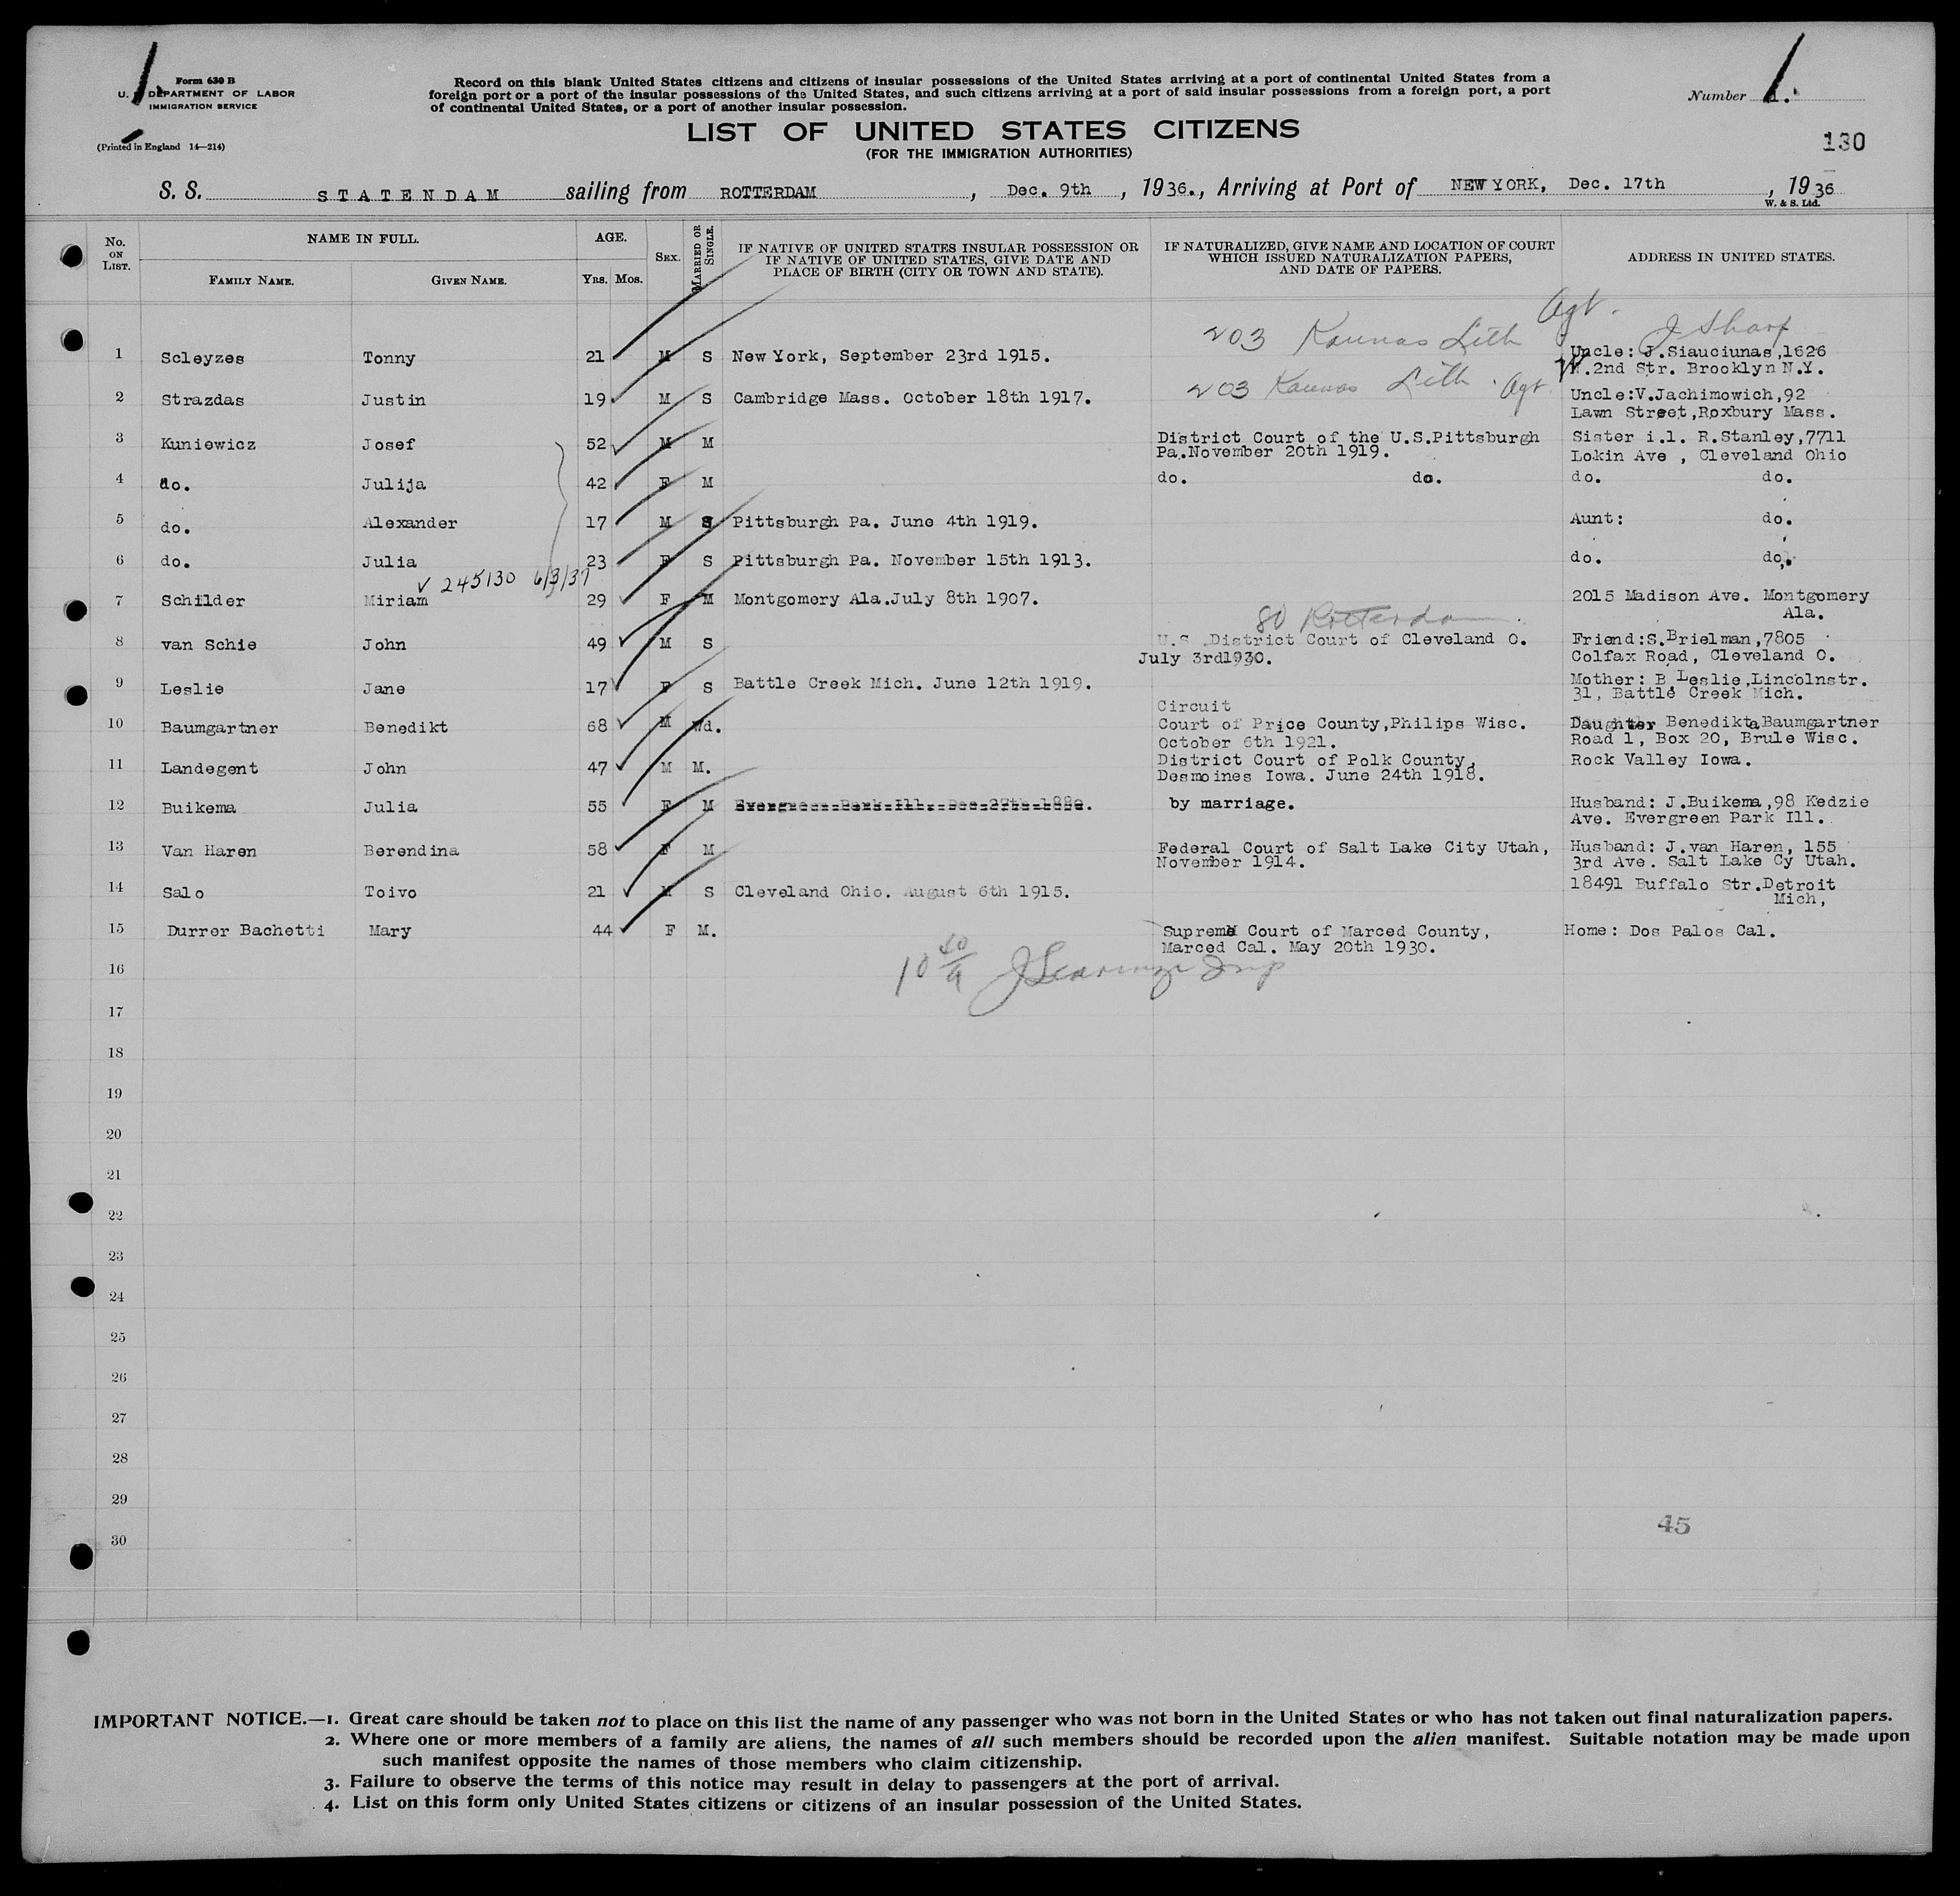 Form 630 B
U. S. DEPARTMENT OF LABOR
IMMIGRATION SERVICE
(Printed in England 14—214)
Record on this blank United States citizens and citizens of insular possessions of the United States arriving at a port of continental United States from a
foreign port or a port of the insular possessions of the United States, and such citizens arriving at a port of said insular possessions from a foreign port, a port
of continental United States, or a port of another insular possession.
Number 1.
LIST OF UNITED STATES CITIZENS
(FOR THE IMMIGRATION AUTHORITIES)
130
S. S. STATENDAM sailing from ROTTERDAM, Dec. 9th, 1936., Arriving at Port of NEW YORK, Dec. 17th, 1936
W. & S. Ltd.
No. ON LIST. NAME IN FULL. AGE. SEX. MARRIED OR SINGLE. IF NATIVE OF UNITED STATES INSULAR POSSESSION OR IF NATIVE OF UNITED STATES, GIVE DATE AND PLACE OF BIRTH (CITY OR TOWN AND STATE). IF NATURALIZED, GIVE NAME AND LOCATION OF COURT WHICH ISSUED NATURALIZATION PAPERS, AND DATE OF PAPERS. ADDRESS IN UNITED STATES.
FAMILY NAME. GIVEN NAME. YRS. MOS.
203 Kaunas Lith Agt. J Sharf
1 Scleyzes Tonny 21 M S New York, September 23rd 1915. Uncle: J.Siauciunas,1626
W.2nd Str. Brooklyn N.Y.
203 Kaunas Lith. Agt.
2 Strazdas Justin 19 M S Cambridge Mass. October 18th 1917. Uncle:V.Jachimowich,92
Lawn Street,Roxbury Mass.
3 Kuniewicz Josef 52 M M District Court of the U.S.Pittsburgh Sister i.l. R.Stanley,7711
Pa.November 20th 1919. Lokin Ave , Cleveland Ohio
4 do. Julija 42 F M do. do. do. do.
5 do. Alexander 17 M S Pittsburgh Pa. June 4th 1919. Aunt: do.
6 do. Julia 23 F S Pittsburgh Pa. November 15th 1913. do. do.
✓ 245130 6/3/37
7 Schilder Miriam 29 F M Montgomery Ala.July 8th 1907. 2015 Madison Ave. Montgomery
Ala.
80 Rotterdam
8 van Schie John 49 M S U.S. District Court of Cleveland O. Friend:S.Brielman,7805
July 3rd1930. Colfax Road, Cleveland O.
9 Leslie Jane 17 F S Battle Creek Mich. June 12th 1919. Mother: B Leslie,Lincolnstr.
31, Battle Creek Mich.
Circuit
10 Baumgartner Benedikt 68 M Wd. Court of Price County,Philips Wisc. Daughter Benedikta Baumgartner
October 6th 1921. Road 1, Box 20, Brule Wisc.
11 Landegent John 47 M M. District Court of Polk County, Rock Valley Iowa.
Desmoines Iowa. June 24th 1918.
12 Buikema Julia 55 F M Evergreen Park Ill. Dec. by marriage. Husband: J.Buikema,98 Kedzie
Ave. Evergreen Park Ill.
13 Van Haren Berendina 58 F M Federal Court of Salt Lake City Utah, Husband: J.van Haren, 155
November 1914. 3rd Ave. Salt Lake Cy Utah.
14 Salo Toivo 21 M S Cleveland Ohio. August 6th 1915. 18491 Buffalo Str.Detroit
Mich,
15 Durrer Bachetti Mary 44 F M. Supreme Court of Marced County, Home: Dos Palos Cal.
Marced Cal. May 20th 1930.
16
17
18
19
20
21
22
23
24
25
26
27
28
29
45
30
IMPORTANT NOTICE.—1. Great care should be taken not to place on this list the name of any passenger who was not born in the United States or who has not taken out final naturalization papers.
2. Where one or more members of a family are aliens, the names of all such members should be recorded upon the alien manifest. Suitable notation may be made upon
such manifest opposite the names of those members who claim citizenship.
3. Failure to observe the terms of this notice may result in delay to passengers at the port of arrival.
4. List on this form only United States citizens or citizens of an insular possession of the United States.